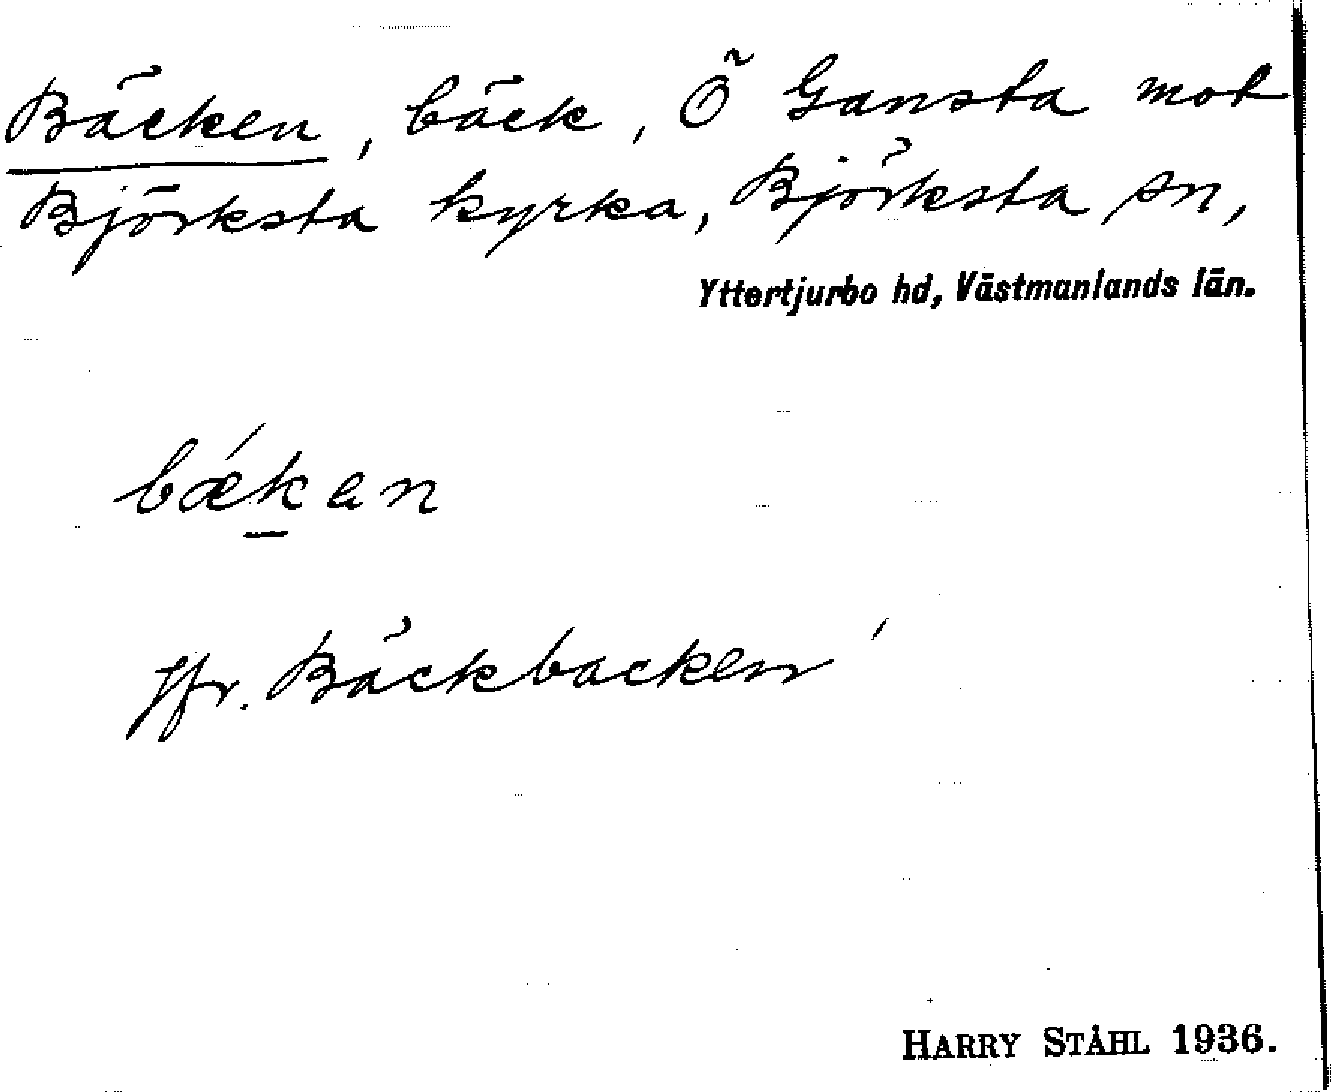 Bäcken, bäck, Ö Gansta mot
Björksta kyrka, Björksta sn,
Yttertjurbo hd, Västmanlands län.
bǽk̲an
Jfr. Bäckbacken
HARRY STÅHL 1936.